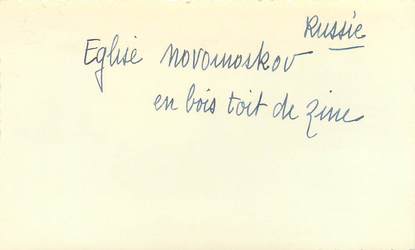 Russie
Eglise novomoskov
en bois toit de zinc